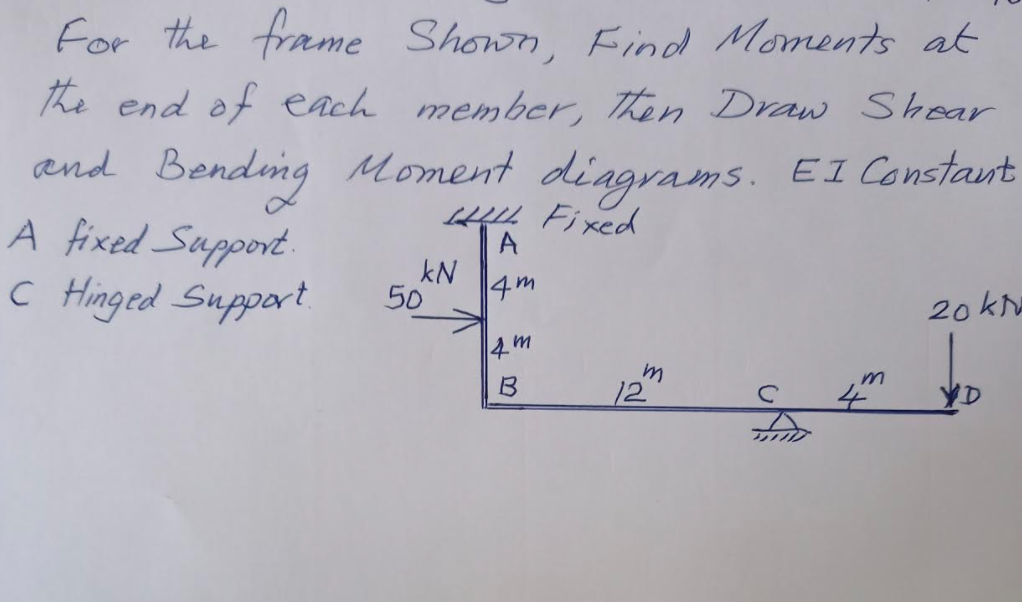 For the frame Shown, Find Moments at
the end of each member, then Draw Shear
and Bending Moment diagrams. EI Constant
A fixed Support.
Fixed
A
C Hinged Support.
50 kN
4m
20 kN
4m
B
12m
C
4m
D